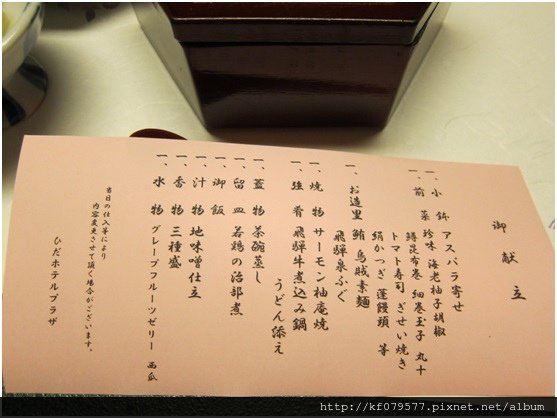 御献立
一、小鉢 アスパラ寄せ
一、前菜 珍味 海老柚子胡椒
鱒昆布巻 細巻玉子 丸十
トマト寿司 ぎせい焼き
絹かつぎ 蓮饅頭 等
一、お造里 鮪 烏賊素麺
飛騨泉ふぐ
一、焼物 サーモン柚庵焼
一、強肴 飛騨牛煮込み鍋
うどん添え
一、蓋物 茶碗蒸し
一、留皿 若鶏の治部煮
一、御飯
一、汁物 地味噌仕立
一、香物 三種盛
一、水物 グレープフルーツゼリー 西瓜
当日の仕入等により
内容変更させて頂く場合がございます。
ひだホテルプラザ
http://kf079577.pixnet.net/album